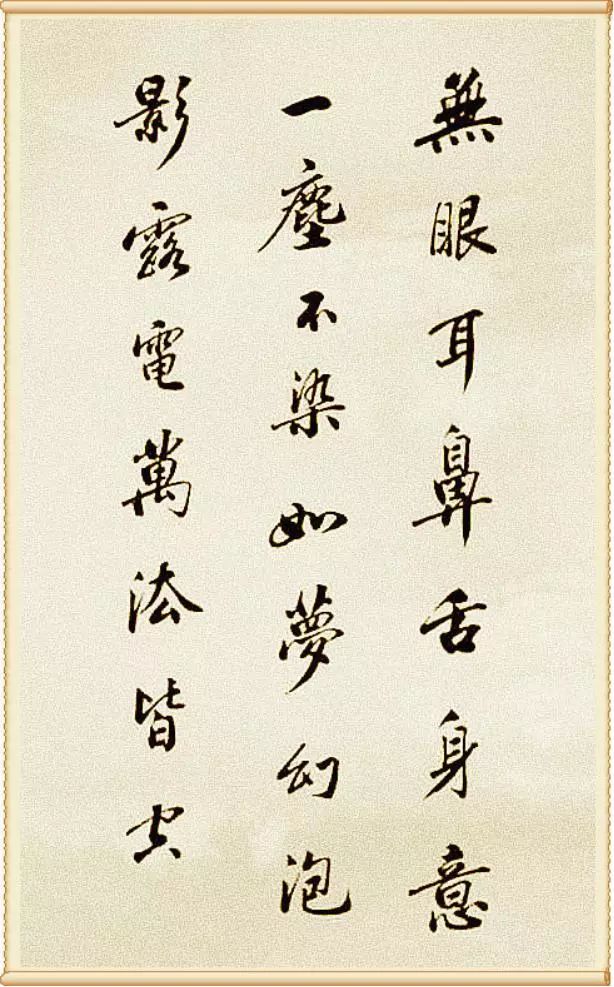 無眼耳鼻舌身意
一塵不染如夢幻泡
影露電萬法皆空